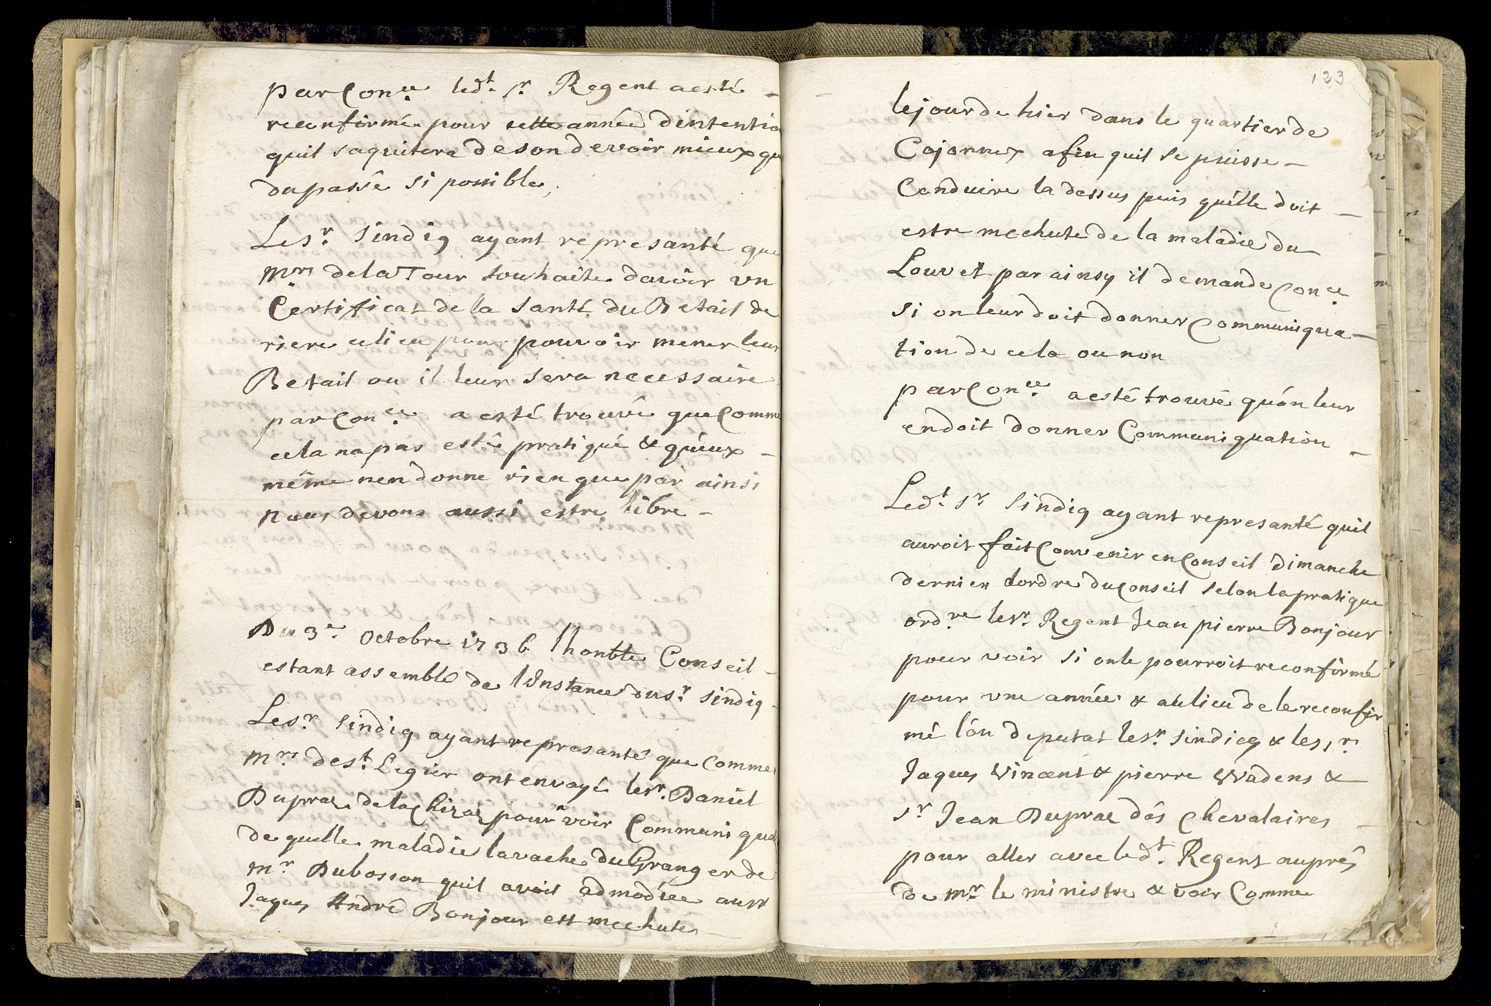 par Con.ce led.t Sr. Regent a esté
reconfirmé pour cette année dintentio
quil saquitera de son devoir mieux qu
du passé si possible.
Le Sr. Sindiq ayant represanté que
Mrs de la Tour souhaite davoir un
Certificat de la santé du Betail de
riere ce lieu pour pouvoir mener leur
Betail ou il leur sera necessaire
par Con.ce a esté trouvé que Comme
cela na pas esté pratiqué & queux
même nen donne rien que par ainsi
nous devons aussi estre libre
Du 3e Octobre 1736 lhonble Conseil
estant assemblé de linstance du Sr. Sindiq
Le Sr. Sindiq ayant represanté que Comme
Mrs de St. Legier ont envoyé le Sr. Daniel
Duprae de la Chizaz pour voir Communiqua
de quelle maladie la vache du Granger de
Mr. Dubosson quil avoit admodiée aux
Jaques André Bonjour est mechute
123
le jour de hier dans le quartier de
Cojonnex afin quil se puisse
Conduire la dessus puis quélle doit
estre mechute de la maladie du
Louvet par ainsy il demande Con.ce
si on leur doit donner Communiqua
tion de cela ou non
par Con.ce a esté trouvé quón leur
en doit donner Communiquation
Led.t Sr. Sindiq ayant represanté quil
auroit fait Convenir en Conseil dimanche
dernier dordre du Conseil selon la pratique
ord.re le Sr. Regent Jean pierre Bonjour
pour voir si on le pourroit reconfirmé
pour une année & au lieu de le reconfir
mé lón deputat le Sr. Sindicq & les Sr.
Jaques Vincent & pierre Wadens &
Sr. Jean Duprae dés Chevalaires
pour aller avec led.t Regent auprés
de Mr. le ministre & voir Comme